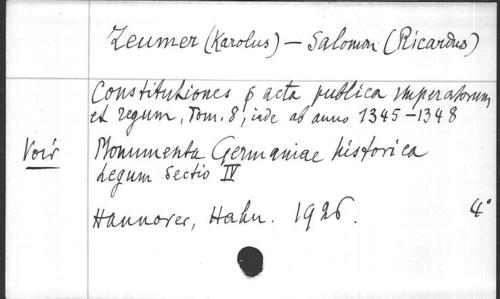 Zeumer (Karolus) – Salomon (Ricardus)
Constitutiones & acta publica imperatorum
et regum, Tom. 8, inde ab anno 1345–1348
Voir Monumenta Germaniae historica
Legum Sectio IV
Hannover, Hahn. 1926. 4°